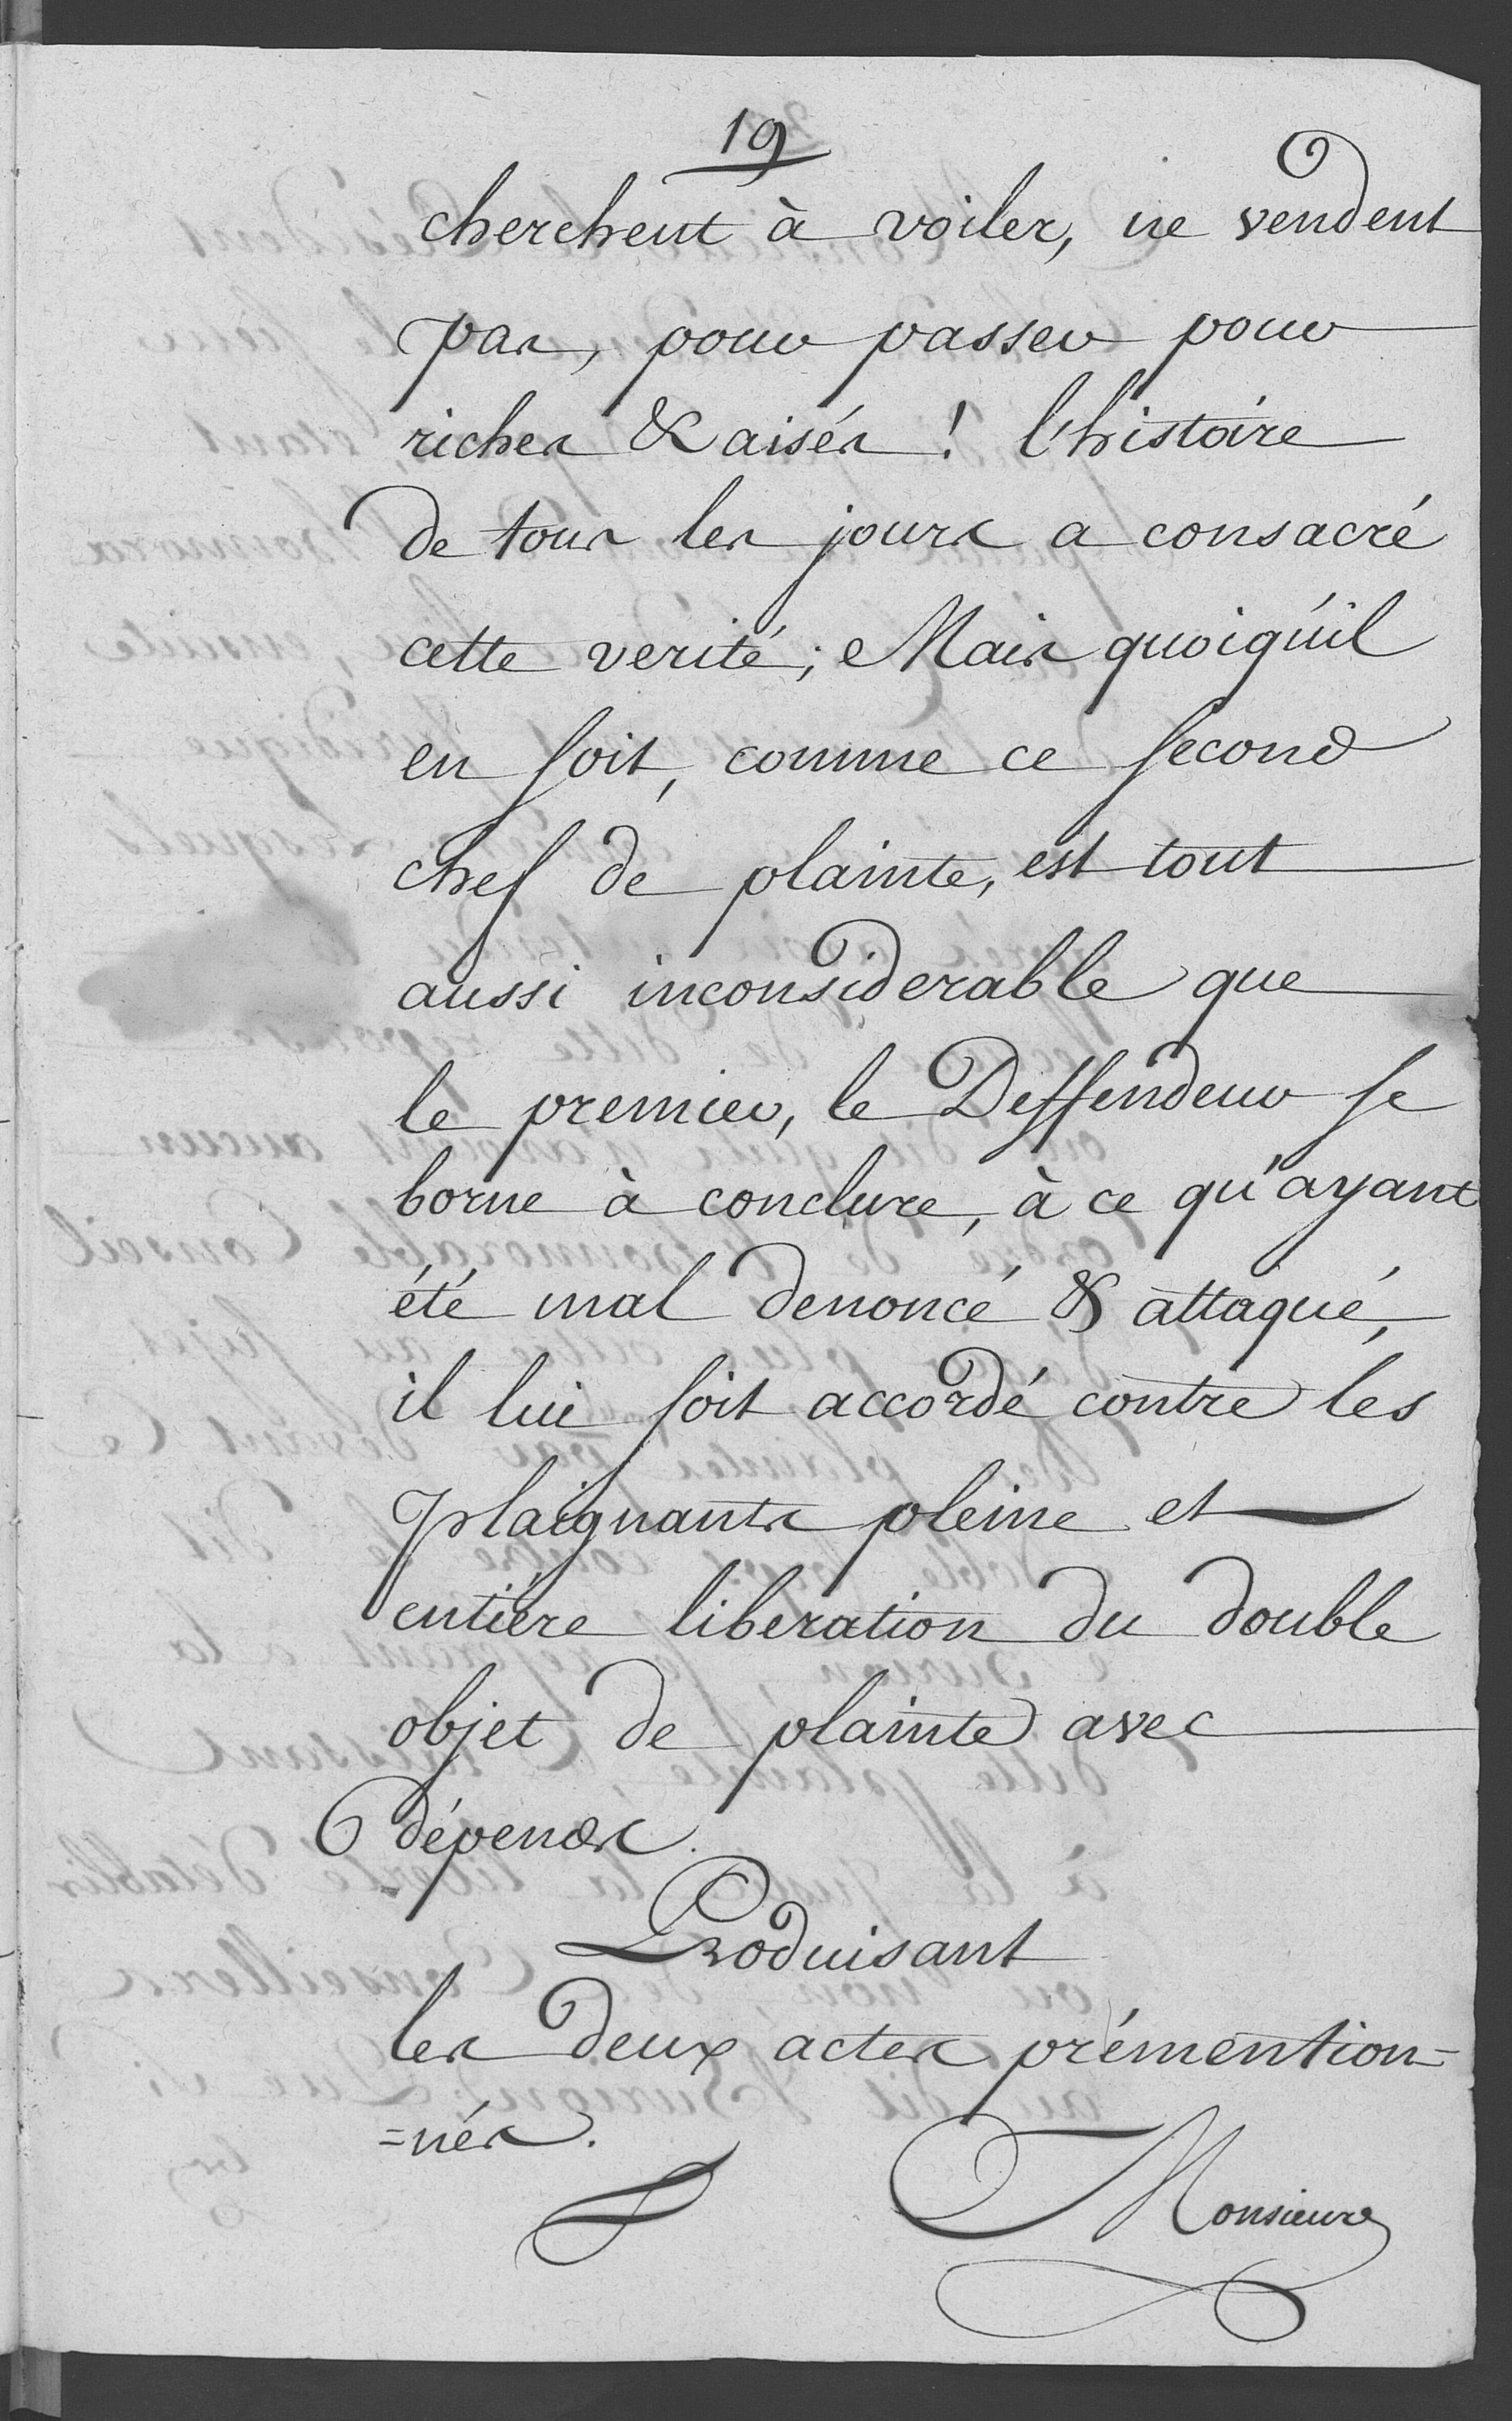 19
cherchent à voiler, ne vendent
pas, pour passer pour
riches & aisés ! l'histoire
de tous les jours a consacré
cette verité ; Mais quoiqu'il
en soit, comme ce second
chef de plainte, est tout
aussi inconsiderable que
le premier, le Deffendeur se
borne à conclure, à ce qu'ayant
été mal denoncé & attaqué,
il lui soit accordé contre les
plaignants pleine et
entiére liberation du double
objet de plainte avec
dépends.
Produisant
les deux actes prémention=
=nés.
Monsieur